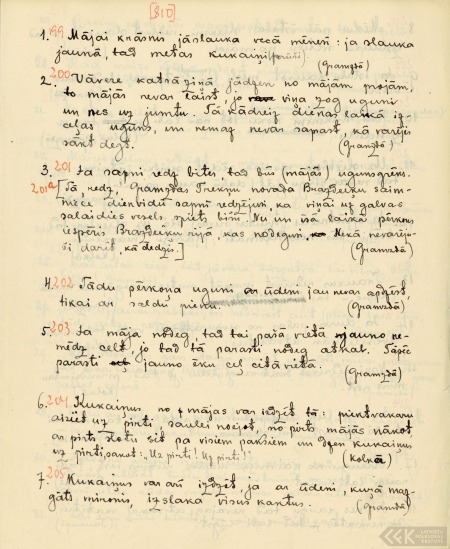 [810]
1. 199 Mājai krāsnis jāslauka vecā mēnesī: ja slauka
jaunā, tad metas kukaiņi (
(Gramzdā)
2. 200 Vāvere katrā ziņā jādzen no mājām projām,
to mājās nevar laist, jo viņa zog uguni
un nes uz jumtu. Tā kādreiz dienas laikā iz-
ceļas uguns, un nemaz nevar saprast, kā varēja
sākt degt. (Gramzdā)
3. 201 Ja sapnī redz bites, tad būs (mājās) ugunsgrēks.
201a [Tā, redz, Gramzdas Trekņu novada Brazdeiku saim-
niece dienvidū sapnī redzējusi, ka viņai uz galvas
salaidies vesels spiets bišu. Nu un īsā laikā pērkons
iespēris Brazdeiku rijā, kas nodegusi. Nekā nevarēju-
ši darīt, kā dedzis.] (Gramzdā)
4. 202 Tādu pērkoņa uguni ar ūdeni jau nevar apdzēst,
tikai ar saldu pienu. (Gramzdā)
5. 203 Ja māja nodeg, tad tai pašā vietā jauno ne-
mēdz celt, jo tad tā parasti nodeg atkal. Tāpēc
parasti jauno ēku ceļ citā vietā.
(Gramzdā)
6. 204 Kukaiņus no mājas var izdzīt tā: piektvakaru
aiziet uz pirti saulei noejot, no pirts mājās nākot
ar pirts slotu sit pa visiem pakšiem un dzen kukaiņus
uz pirti, sakot: „Uz pirti! Uz pirti!"
(Kalnā)
7. 205 Kukaiņus var arī izdzīt ja ar ūdeni, kuŗā maz-
gāts mironis, izslaka visus kaktus.
(Gramzdā)
LFK
LATVIEŠU
FOLKLORAS
KRĀTUVE